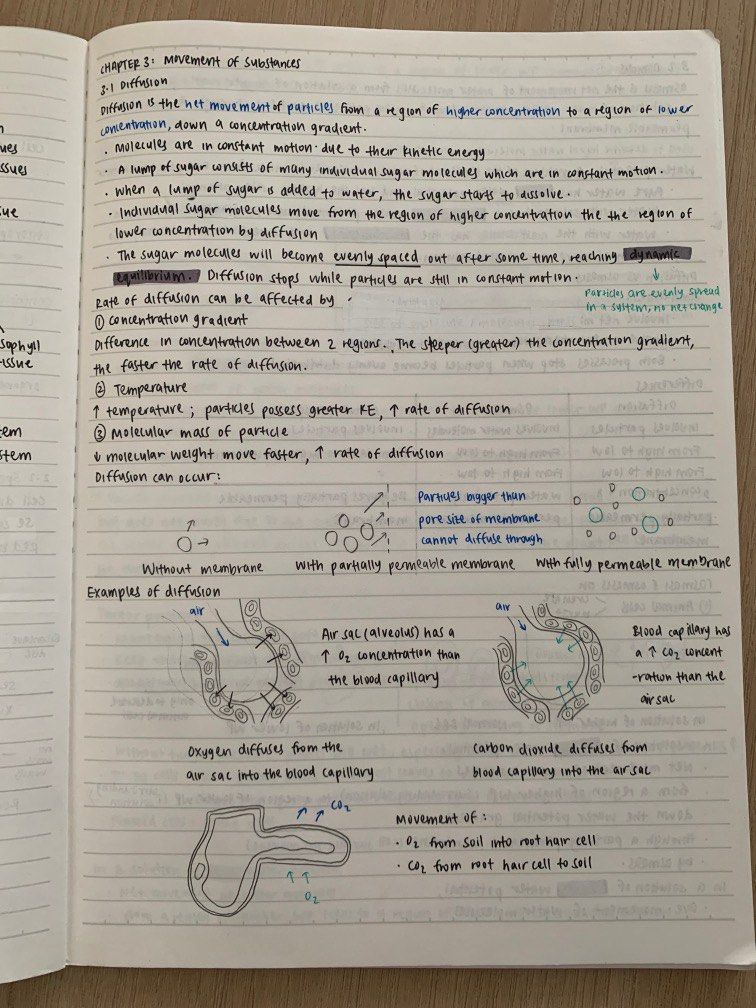 CHAPTER 3: Movement of Substances
3.1 Diffusion
Diffusion is the net movement of particles from a region of higher concentration to a region of lower
concentration, down a concentration gradient.
· Molecules are in constant motion due to their kinetic energy
· A lump of sugar consists of many individual sugar molecules which are in constant motion.
· When a lump of sugar is added to water, the sugar starts to dissolve.
· Individual sugar molecules move from the region of higher concentration the the region of
lower concentration by diffusion
· The sugar molecules will become evenly spaced out after some time, reaching dynamic
equilibrium. Diffusion stops while particles are still in constant motion.
Particles are evenly spread
in a system, no net change
Rate of diffusion can be affected by
① concentration gradient
Difference in concentration between 2 regions. The steeper (greater) the concentration gradient,
the faster the rate of diffusion.
② Temperature
↑ temperature ; particles possess greater KE, ↑ rate of diffusion
③ Molecular mass of particle
↓ molecular weight move faster, ↑ rate of diffusion
Diffusion can occur:
Particles bigger than
pore size of membrane
cannot diffuse through
Without membrane
With partially permeable membrane
With fully permeable membrane
Examples of diffusion
air
Air sac (alveolus) has a
↑ O₂ concentration than
the blood capillary
air
Blood capillary has
a ↑ CO₂ concent
-ration than the
air sac
Oxygen diffuses from the
air sac into the blood capillary
carbon dioxide diffuses from
blood capillary into the air sac
CO₂
O₂
Movement of :
· O₂ from soil into root hair cell
· CO₂ from root hair cell to soil
ues
ssues
ue
sophyll
issue
em
stem